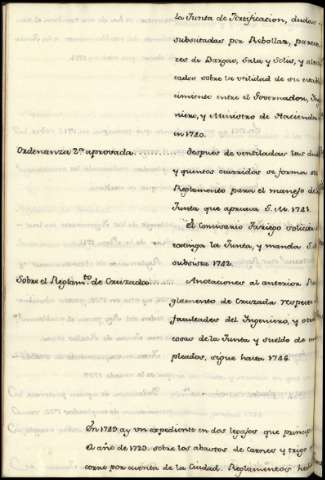 la Junta de Fortificacion, dudas
subsitadas por Rebollar, parece
res de Bargas, Sala y Solis, y alter
cados sobre la utilidad de su estable
cimiento entre el Governador, In
niero, y Ministro de Hacienda
en 1740.
Ordenanza 2ª aprovada ...... despues de ventiladas las dud
y puntos ocurridos se forma un
Reglamento para el manejo de
Junta que aprueva S. M. 1741.
el Comisario Iuriego solicita
extinga la Junta, y manda S. M
subsista 1742.
Sobre el Reglamto de Cruzada ...... Anotaciones al anterior Re
glamento de Cruzada respecto
facultades del Ingeniero, y otras
cosas de la Junta y sueldo de em
pleados, sigue hasta 1746.
En 1749 ay un expediente en dos legajos que princip
el año de 1720. sobre los abastos de carnes y trigo
corre por cuenta de la Ciudad. Reglamentos